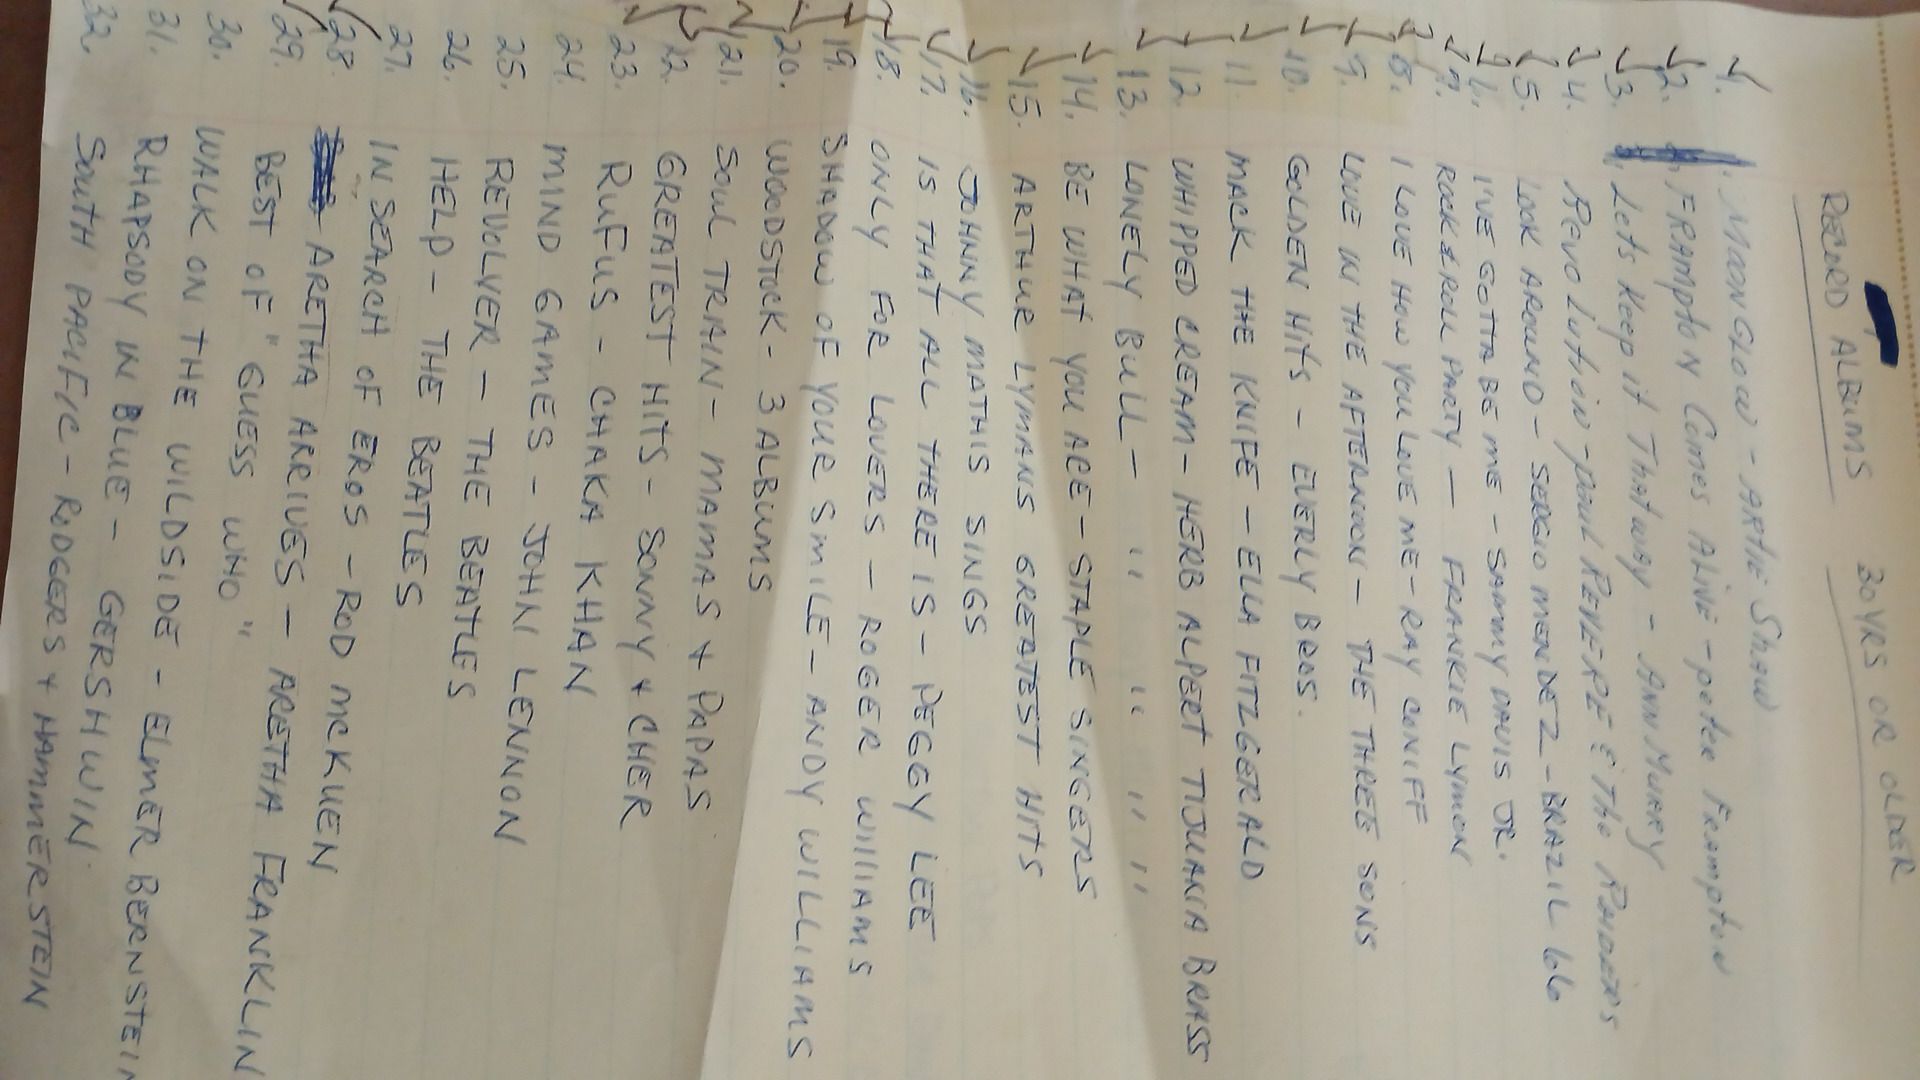 RECORD ALBUMS 30 YRS OR OLDER
1. MOONGLOW - ARTIE Shaw
2. FRAMptoN Comes Alive - peter Frampton
3. Lets Keep it That way - Ann Murry
4. Revolution - paul REVERE & The RAIDER'S
5. LOOK AROUND - SERGIO MENDEZ - BRAZIL 66
6. I'VE GOTTA BE ME - SAMMY DAVIS JR.
7. ROCK & ROLL PARTY - FRANKIE LYMON
8. I LOVE HOW YOU LOVE ME - RAY CONIFF
9. LOVE IN THE AFTERNOON - THE THREE SONS
10. GOLDEN HITS - EVERLY BROS.
11. MACK THE KNIFE - ELLA FITZGERALD
12. WHIPPED CREAM - HERB ALPERT TIJUANA BRASS
13. LONELY BULL - " " " "
14. BE WHAT YOU ARE - STAPLE SINGERS
15. ARTHUR LYMANS GREATEST HITS
16. JOHNNY MATHIS SINGS
17. IS THAT ALL THERE IS - PEGGY LEE
18. ONLY FOR LOVERS - ROGER WILLIAMS
19. SHADOW OF YOUR SMILE - ANDY WILLIAMS
20. WOODSTOCK - 3 ALBUMS
21. SOUL TRAIN - MAMAS + PAPAS
22. GREATEST HITS - SONNY + CHER
23. RUFUS - CHAKA KHAN
24. MIND GAMES - JOHN LENNON
25. REVOLVER - THE BEATLES
26. HELP - THE BEATLES
27. IN SEARCH OF EROS - ROD MCKUEN
28. ARETHA ARRIVES - ARETHA FRANKLIN
29. BEST OF "GUESS WHO"
30. WALK ON THE WILDSIDE - ELMER BERNSTEIN
31. RHAPSODY IN BLUE - GERSHWIN
32. SOUTH PACIFIC - RODGERS + HAMMERSTEIN